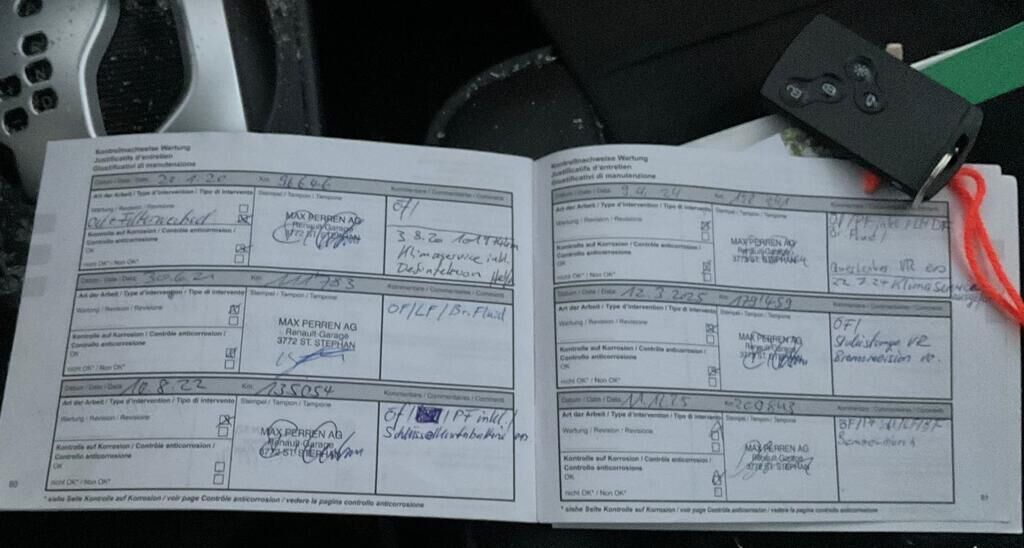 Kontrollnachweise Wartung
Justificatifs d'entretien
Giustificativi di manutenzione
Datum / Date / Data 22.1.20 Km 96646 Kommentare / Commentaires / Commenti
Art der Arbeit / Type d'intervention / Tipo di intervento Stempel / Tampon / Tampone
Wartung / Revision / Revisione
Oel + Filterwechsel
Kontrolle auf Korrosion / Contrôle anticorrosion /
Controllo anticorrosione
OK
nicht OK* / Non OK*
MAX PERREN AG
Renault-Garage
3772 ST. STEPHAN
ÖF/
3.8.20
Klimaservice inkl.
Desinfektion
Datum / Date / Data 30.6.21 Km 111783 Kommentare / Commentaires / Commenti
Art der Arbeit / Type d'intervention / Tipo di intervento Stempel / Tampon / Tampone
Wartung / Revision / Revisione
Kontrolle auf Korrosion / Contrôle anticorrosion /
Controllo anticorrosione
OK
nicht OK* / Non OK*
MAX PERREN AG
Renault-Garage
3772 ST. STEPHAN
ÖF/LF/Br. Fluid
Datum / Date / Data 10.8.22 Km 135054 Kommentare / Commentaires / Commenti
Art der Arbeit / Type d'intervention / Tipo di intervento Stempel / Tampon / Tampone
Wartung / Revision / Revisione
Kontrolle auf Korrosion / Contrôle anticorrosion /
Controllo anticorrosione
OK
nicht OK* / Non OK*
MAX PERREN AG
Renault-Garage
3772 ST. STEPHAN
ÖF/ /PF inkl./
60
* siehe Seite Kontrolle auf Korrosion / voir page Contrôle anticorrosion / vedere la pagina controllo anticorrosione
Kontrollnachweise Wartung
Justificatifs d'entretien
Giustificativi di manutenzione
Datum / Date / Data 9.4.24 Km Kommentare / Commentaires / Commenti
Art der Arbeit / Type d'intervention / Tipo di intervento Stempel / Tampon / Tampone
Wartung / Revision / Revisione
Kontrolle auf Korrosion / Contrôle anticorrosion /
Controllo anticorrosione
OK
nicht OK* / Non OK*
MAX PERREN AG
Renault-Garage
3772 ST. STEPHAN
ÖF/PF inkl
Br. Fluid/
VR ers
Klimaservice
Datum / Date / Data 12.3.2025 Km 179'459 Kommentare / Commentaires / Commenti
Art der Arbeit / Type d'intervention / Tipo di intervento Stempel / Tampon / Tampone
Wartung / Revision / Revisione
Kontrolle auf Korrosion / Contrôle anticorrosion /
Controllo anticorrosione
OK
nicht OK* / Non OK*
MAX PERREN AG
Renault-Garage
3772 ST. STEPHAN
ÖF/
VR
Bremsrevision
Datum / Date / Data Km 209843 Kommentare / Commentaires / Commenti
Art der Arbeit / Type d'intervention / Tipo di intervento Stempel / Tampon / Tampone
Wartung / Revision / Revisione
Kontrolle auf Korrosion / Contrôle anticorrosion /
Controllo anticorrosione
OK
nicht OK* / Non OK*
MAX PERREN AG
Renault-Garage
3772 ST. STEPHAN
61
* siehe Seite Kontrolle auf Korrosion / voir page Contrôle anticorrosion / vedere la pagina controllo anticorrosione